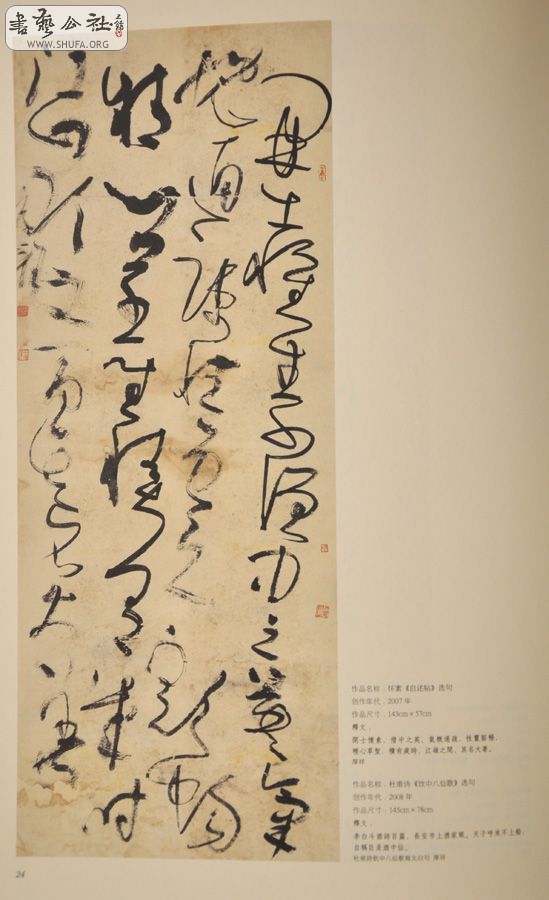 書藝公社
WWW.SHUFA.ORG
開士懷素僧中之英氣
概通疏性靈豁暢
精心草聖積有歲時
江嶺之間其名大著
作品名称：怀素《自述帖》选句
创作年代：2007 年
作品尺寸：143cm × 57cm
釋文：
開士懷素，僧中之英，氣概通疏，性靈豁暢，
精心草聖，積有歲時，江嶺之間，其名大著。
厚祥
作品名称：杜甫诗《饮中八仙歌》选句
创作年代：2008 年
作品尺寸：145cm × 78cm
釋文：
李白斗酒詩百篇，長安市上酒家眠。天子呼來不上船，
自稱臣是酒中仙。
杜甫詩飲中八仙歌寫太白句 厚祥
24